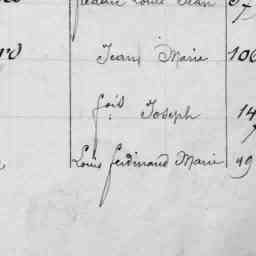 Louis Jean 57
rd Jean Marie 106
fois Joseph 14
Louis ferdinand Marie 49